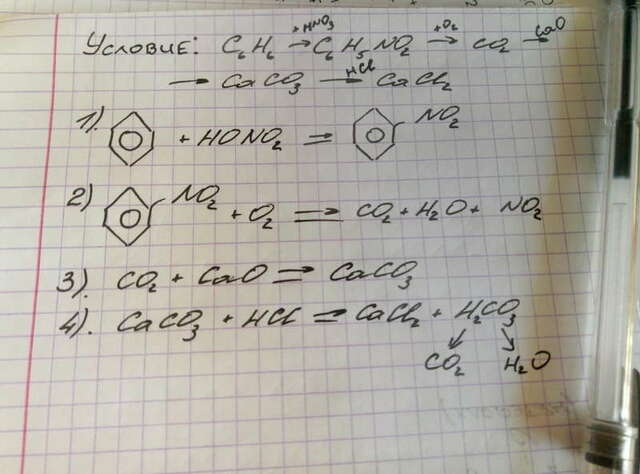 Условие: C₆H₆ →+HNO₃ C₆H₅NO₂ →+O₂ CO₂ →CaO
→ CaCO₃ →HCl CaCl₂
1). + HONO₂ = NO₂
2) NO₂ + O₂ = CO₂ + H₂O + NO₂
3). CO₂ + CaO = CaCO₃
4). CaCO₃ + HCl = CaCl₂ + H₂CO₃
CO₂ H₂O